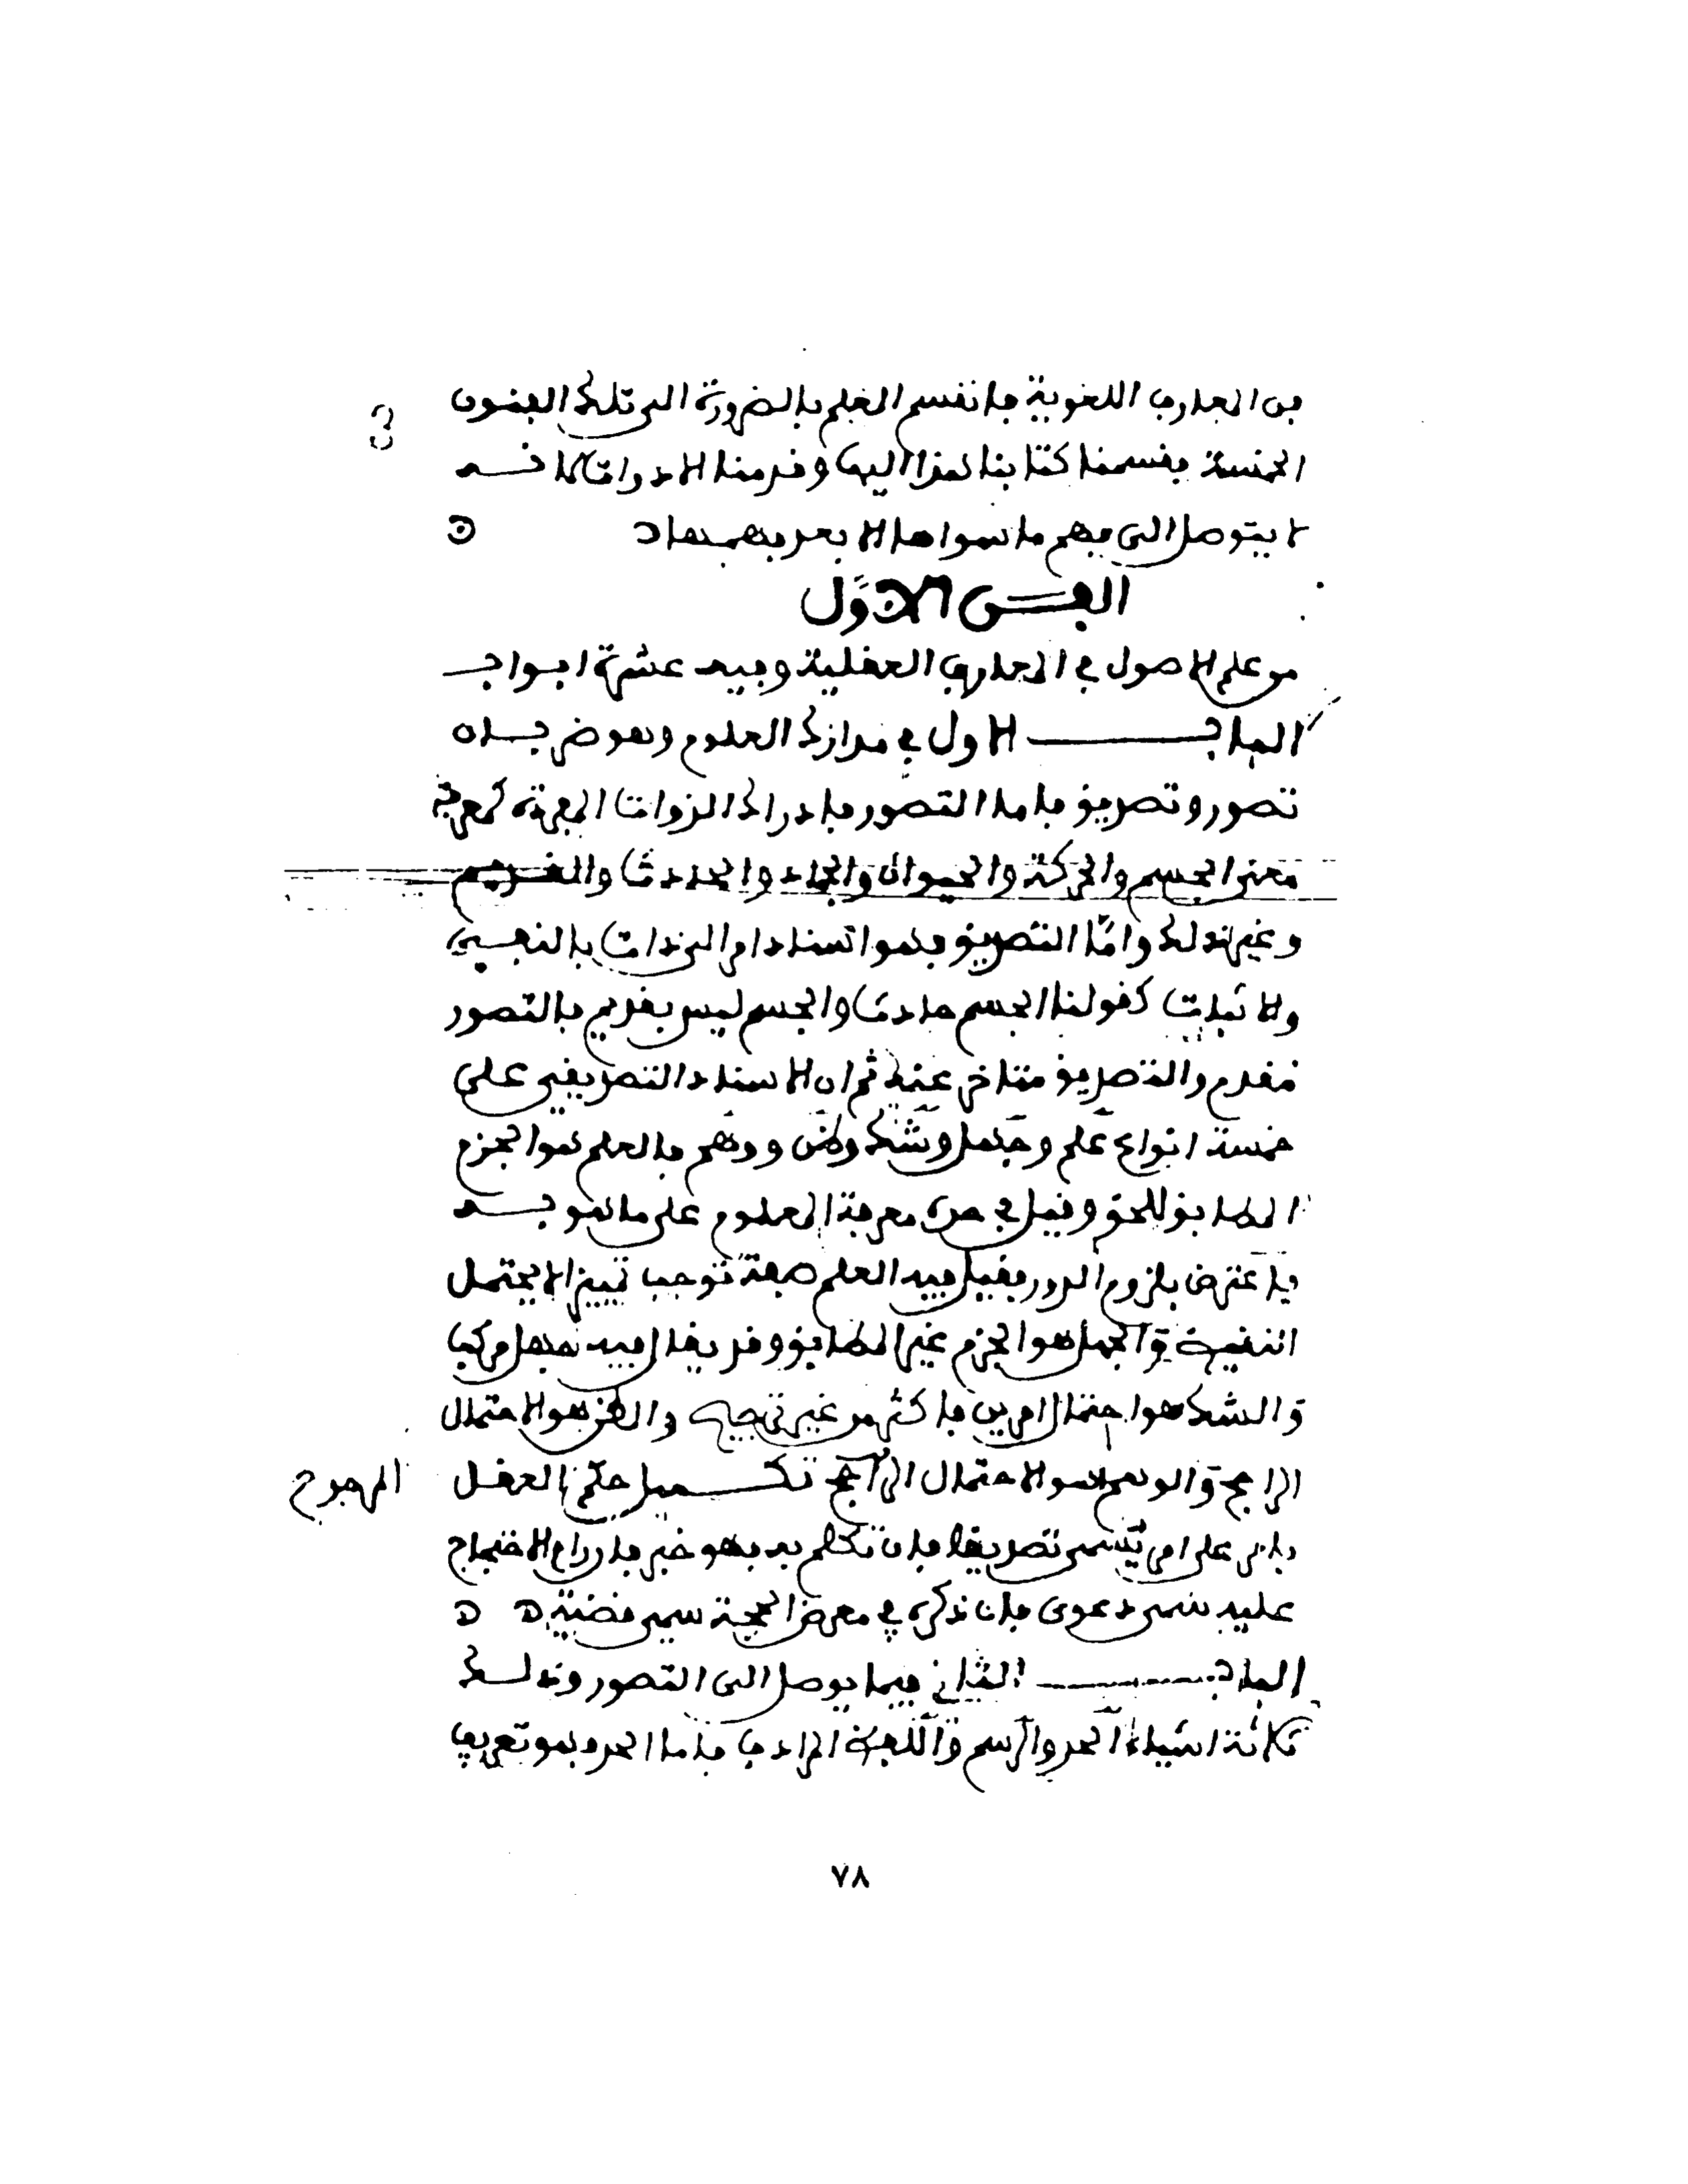 من المعارف اللغوية فانقسم العلم بالضرورة الى تلك الفنون
الخمسة فقسمنا كتابنا هذا اليها وقدمنا الادوات لانــه
لا يتوصل الى فهم ما سواها الا بعد فهمها
الفــن الاوَّل
من علم الاصول في المعارف العقلية وفيه عشرة ابواب
البــاب الاول في مدارك العلوم وهو ضربــان
تصور وتصديق فاما التصور فادراك الذوات المفردة كمعرفة
معنى الجسم والحركة والحيوان والجماد والحادث والقــديم
وغير ذلك وامّا التصديق فهو اسناد امر الى الذات بالنفــي
والاثبات كقولنا الجسم حادث والجسم ليس بقديم فالتصور
مقدم والتصديق متاخر عنه ثم ان الاسناد التصديقي على
خمسة انواع علم وجهل وشك وظن ووهم فالعلم هو الجزم
المطابق للحق وقيل في حده معرفة المعلوم على ما هو بــه
فاعترض بلزوم الدور فقيل فيه العلم صفة توجب تمييزا لا يحتمل
النقيض والجهل هو الجزم غير المطابق وقد يقال فيه جهل مركب
والشك هو احتمال امرين فاكثر من غير ترجيح والظن هو الاحتمال
الراجح والوهم هو الاحتمال تكــميل حكم العقل
المرجوح
بامر على امر يسمى تصديقا فان تكلم به فهو خبر فان رام الاحتجاج
عليه سمى دعوى فان ذكره في معرض الحجة سمى قضية
البــاب الثاني فيما يوصل الى التصور وذلــك
ثلاثة اشياء الحد والرسم واللفظ المرادف فاما الحد فهو تعريف
٧٨